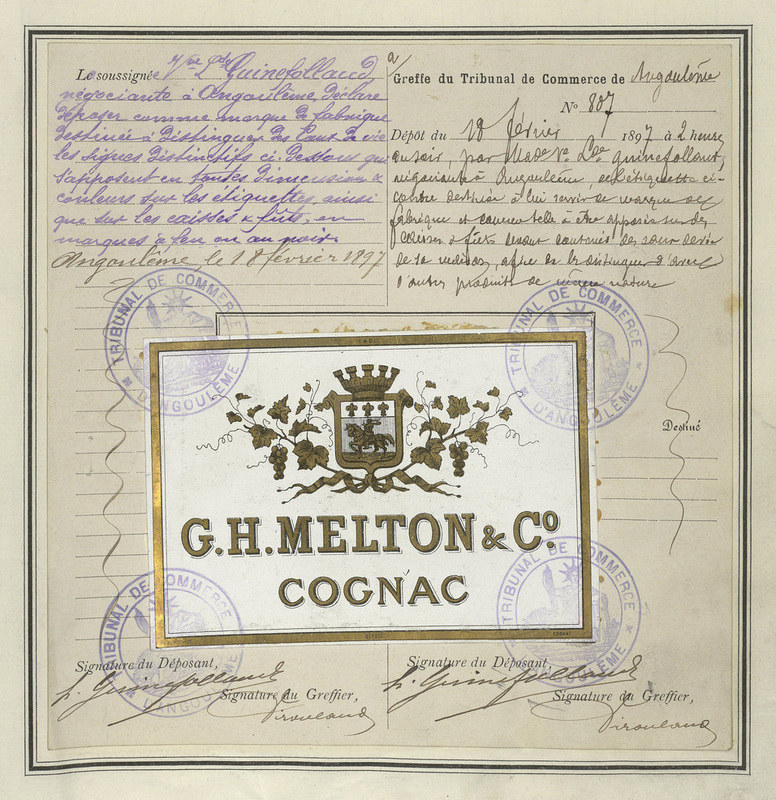 Le soussignée Vve Lde Guinefollaud,
négociante à Angoulême, déclare
déposer comme marque de fabrique
destinée à distinguer des Eaux de vie
les signes distinctifs ci-dessous qui
s'apposent en toutes dimensions &
couleurs sur les étiquettes, ainsi
que sur les caisses & fûts, en
marques à feu ou au noir.
Angoulême, le 18 février 1897
Greffe du Tribunal de Commerce de Angoulême
No 807
Dépôt du 18 février 1897 à 2 heures
du soir, par Made Ve Lde Guinefollaud,
négociante à Angoulême, de l'étiquette ci-
contre destinée à lui servir de marque de
fabrique et comme telle à être apposée sur des
caisses & fûts devant contenir des eaux de vie
de sa maison, afin de les distinguer d'avec
d'autres produits de même nature
TRIBUNAL DE COMMERCE
★ D'ANGOULÊME ★
TRIBUNAL DE COMMERCE
★ D'ANGOULÊME ★
Destiné
G.H. MELTON & Co.
COGNAC
DÉPOSÉ
COGNAC
TRIBUNAL DE COMMERCE
D'ANGOULÊME
TRIBUNAL DE COMMERCE
D'ANGOULÊME
Signature du Déposant,
Signature du Greffier,
Signature du Déposant,
Signature du Greffier,